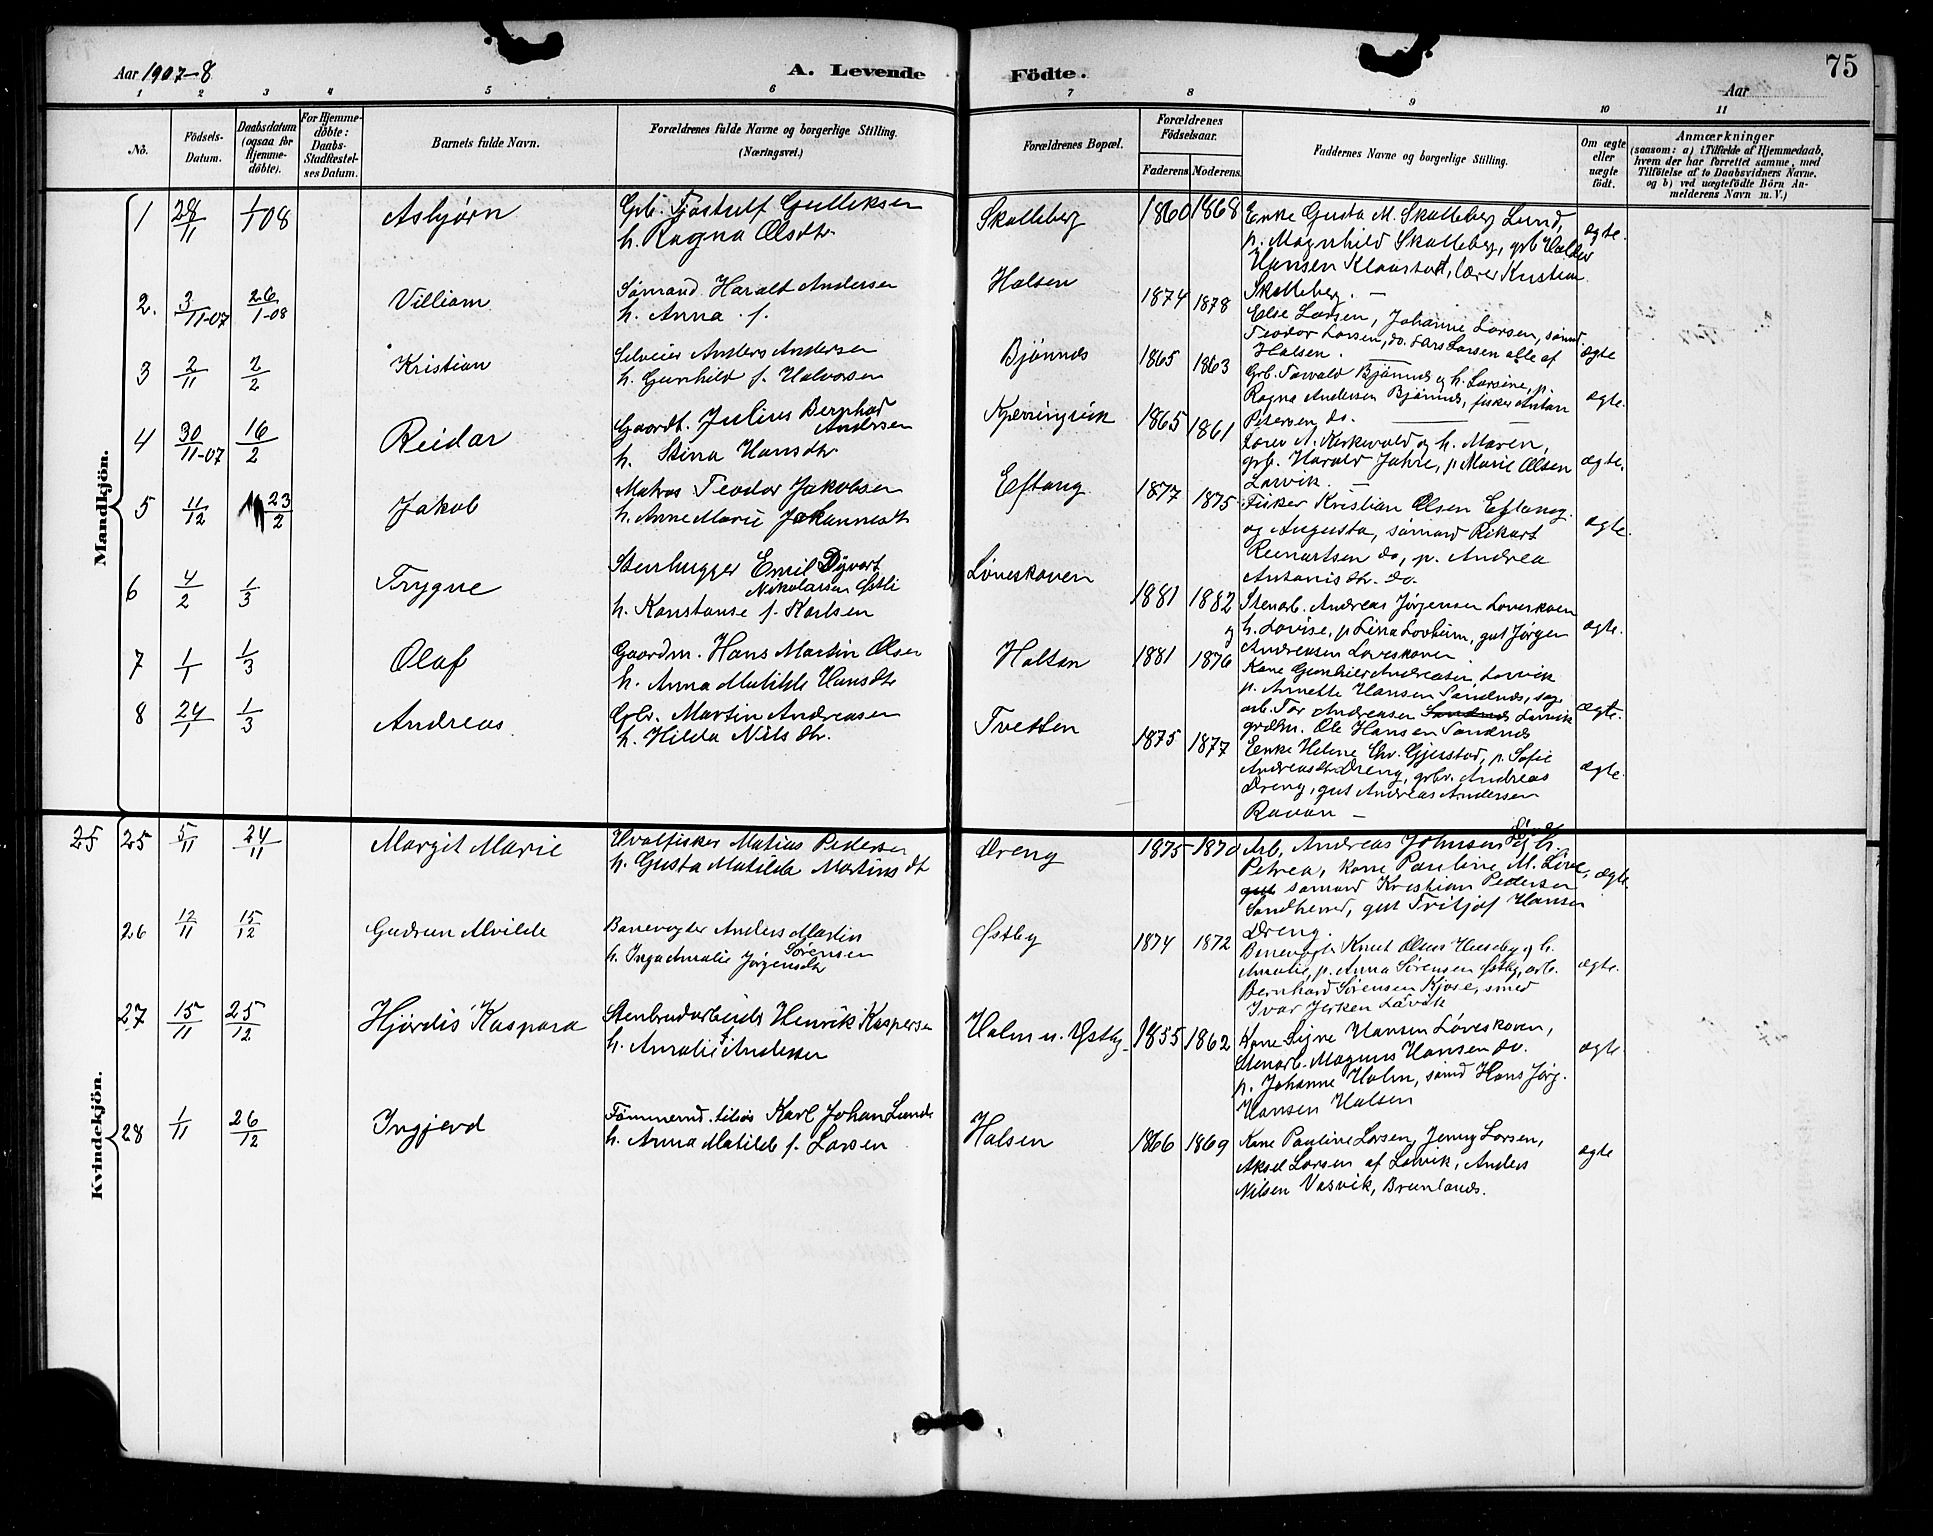 Aar 1907-8
A. Levende Födte.
75
Aar
1 2 3 4 5 6 7 8 9 10 11
No.
Födsels-Datum.
Daabsdatum (ogsaa for Hjemme-döbte).
For Hjemme-döbte: Daabs-Stadfæstel-ses Datum.
Barnets fulde Navn.
Forældrenes fulde Navne og borgerlige Stilling.
(Næringsvei.)
Forældrenes Bopæl.
Forældrenes Födselsaar.
Faderens Moderens
Faddernes Navne og borgerlige Stilling.
Om ægte eller uægte födt.
Anmærkninger
(saasom: a) i Tilfælde af Hjemmedaab, hvem der har forrettet samme, med Tilföielse af to Daabsvidners Navne, og b) ved uægtefödte Börn An-melderens Navn m. V.)
Mandkjön.
1 28/11 1/1 08 Asbjørn
Grb. Tjostulf Gulliksen
h. Ragna Olsdtr
Skalleberg 1860 1868
Enke Gusta M. Skalleberg Lund,
p. Magnhild Skalleberg, grb Haldor
Hansen Klaastad, lærer Kristian
Skalleberg. —
ægte.
2. 3/11-07 26/1-08 Villiam
Sømand Harald Andersen
h. Anna f.
Halsen 1874 1878
Else Larsen, Johanne Larsen, sømd.
Teodor Larsen, do. Lars Larsen alle af
Halsen.
ægte
3 2/11 2/2 Kristian
Selveier Anders Andersen
h. Gunhild f. Halvorsen
Bjønnes 1865 1863
Grb. Torvald Bjønnes og h. Larsine, p.
Ragna Andersen Bjønnes, fisker Anton
Petersen do.
ægte.
4 30/11-07 16/2 Reidar
Gaardt. Julius Bernhad
Andersen
h. Stina Hansdtr
Kjerringvik 1865 1861
Lærer A. Kirkevold og h. Maren,
grb. Harald Jahre, p Marie Olsen
Larvik. —
ægte.
5 11/12 23/2 Jakob
Matros Teodor Jakobsen
h. Anne Marie Johannesdt
Eftang 1877 1875
Fisker Kristian Olsen Eftang
og Augusta, sømand Rikart
Reinartsen do, p. Andrea
Antonisdtr. do.
ægte.
6 4/2 1/3 Trygve
Stenhugger Emil Dyvart
Nikolaisen Østli
h. Konstanse f. Karlsen
Løveskoven 1881 1882
Stenarb. Andreas Jørgensen Løveskoven
og h. Lovise, p Lina Lovheim, gut Jørgen
Andreasen Løveskoven
ægte.
7 1/1 1/3 Olaf
Gaardm. Hans Martin Olsen
h. Anna Matilde Hansdtr
Halsen 1881 1876
Kone Gunhild Andreasen, Larvik
p. Annette Hansen Sandnes, sag
arb. Tor Andreasen Larvik
grdm. Ole Hansen Sandnes
ægte.
8 24/1 1/3 Andreas
Grbr. Martin Andreasen
h. Hilda Nilsdtr.
Tvetten 1875 1877
Enke Helene Chr. Gjerstad, p. Sofie
Andreasdtr Dreng, grbr. Andreas
Dreng, gut Andreas Andersen
Ravan —
ægte.
Kvindekjön.
25 25 5/11 24/11 Margit Marie
Hvalfisker Matias Pedersen
h. Gusta Matilde Martinsdt
Dreng 1875 1870
Arb. Andreas Johnsen Løve og h.
Petrea, kone Pauline M. Løve,
sømand Kristian Pedersen
Sandherred, gut Fritjof Hansen
Dreng.
ægte.
26 12/11 15/12 Gudrun Alvilde
Banevogter Anders Martin
Sørensen
h. Inga Amalie Jørgensdtr
Østby 1874 1872
Banevogter Knut Olsen Huseby og h.
Amalie, p. Anna Sørensen Østby, arb.
Bernhard Sørensen Kjose, smed
Ivar Jerken Larvik
ægte.
27 15/11 25/12 Hjørdis Kaspara
Stenbrudarbeider Henrik Kaspersen
h. Amalie f. Andersen
Holm u. Østby 1855 1862
Kone Signe Hansen Løveskoven,
stenarb. Magnus Hansen do.
p. Johanne Holm, sømd Hans Jørg.
Hansen Halsen
ægte.
28 1/11 26/12 Ingjerd
Tømmermd. tilsjøs Karl Johan Lunde
h. Anna Matilde f. Larsen
Halsen 1866 1869
Kone Pauline Larsen, Jenny Larsen,
Aksel Larsen af Larvik, Anders
Nilsen Vasvik, Brunlanes.
ægte